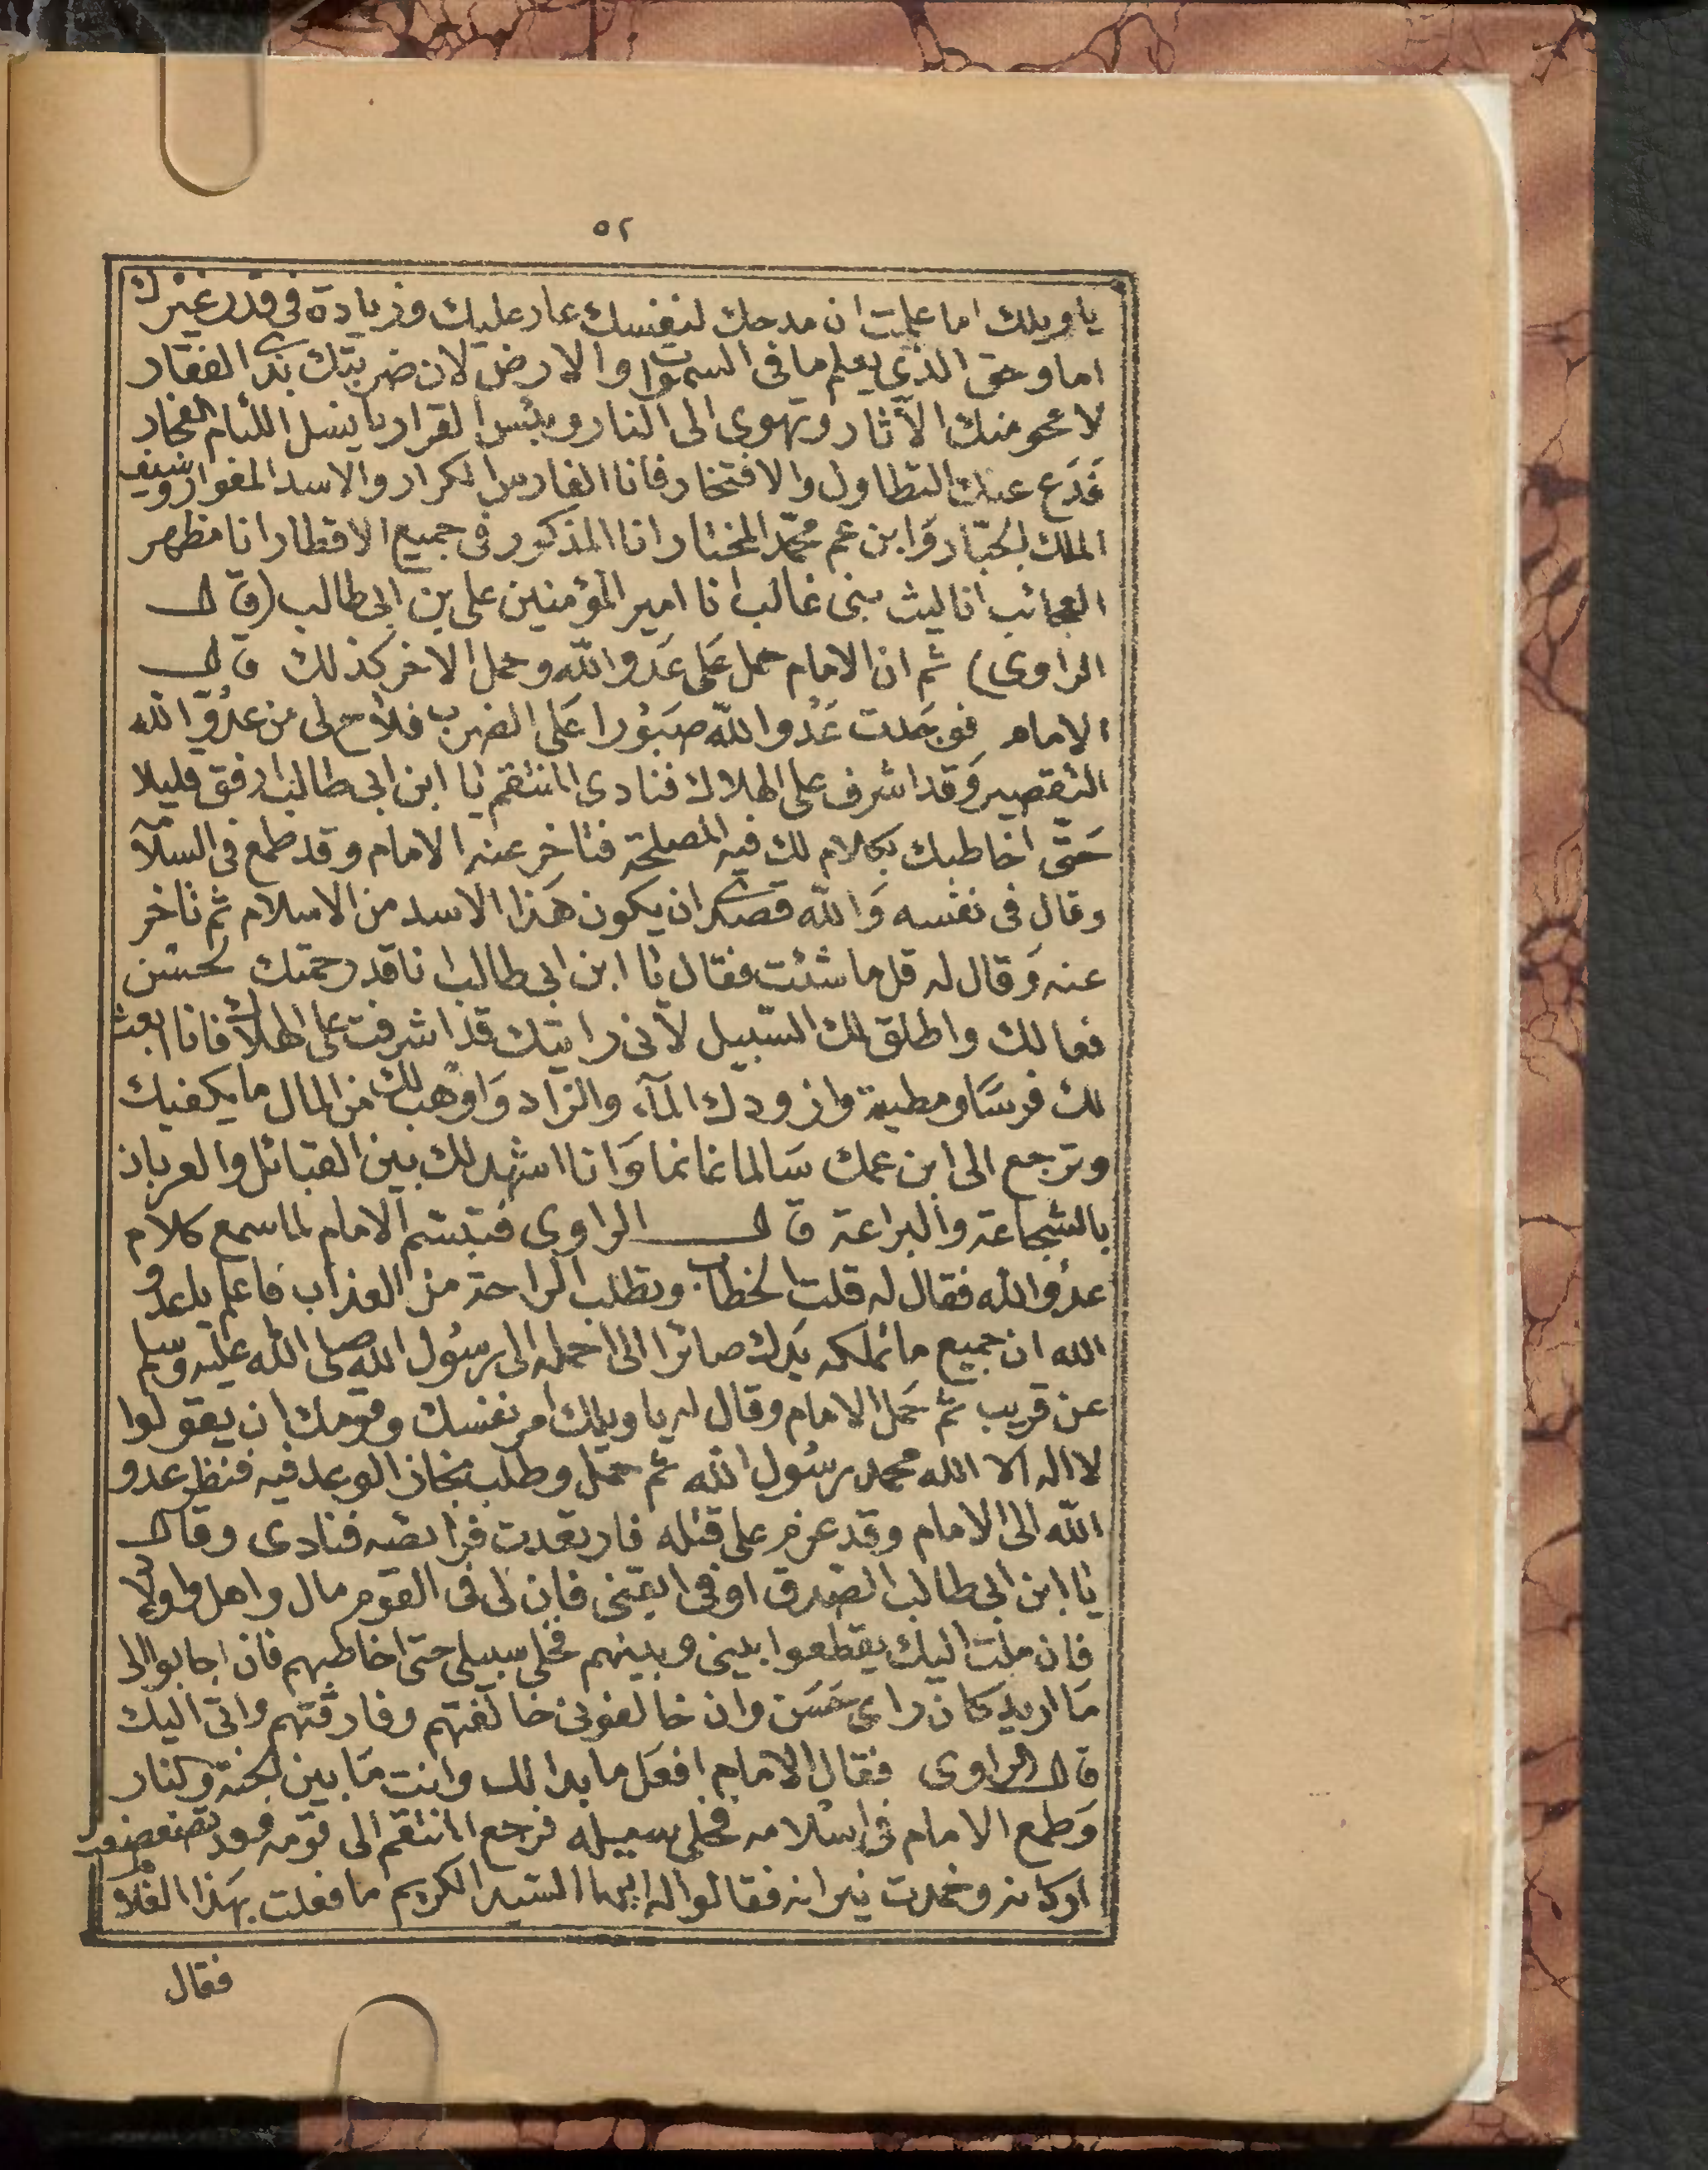 ٥٢
يا ويلك اما علمت ان مدحك لنفسك عار عليك وزيادة فى قدر غيرك
اما وحق الذي يعلم ما فى السموات والارض لان ضربتك بذى الفقار
لا محو منك الآثار وتهوي الى النار وبئس القرار يا نسل اللئام الفجار
فَدَع عنك التطاول والافتخار فانا الفارس الكرار والاسد المغوار وسيف
الملك الجبّار وَابن عم محمّد المختار انا المذكور فى جميع الاقطار انا مظهر
العجائب انا ليث بنى غالب انا امير المؤمنين على بن ابى طالب (قال
الراوى) ثم ان الامام حمل عَلى عَدو الله وحمل الاخر كذلك قال
الامام فوجَدت عَدُو الله صبَوُرا عَلى الضرب فلاح لى من عدُوّ الله
التقصير وَقد اشرف على الهلاك فنادى المنتقم يا ابن ابى طالب ارفق قليلا
حَتّى اخاطبك بكلام لك فيه المصلحة فتاخر عنه الامام وقد طمع فى اسلامه
وقال فى نفسه وَالله قصدى ان يكون هَذا الاسد من الاسلام ثم تاخر
عنه وَقال له قل ما شئت فقال يا ابن ابى طالب انا قد رحمتك لحسن
فعالك واطلق لك السّبيل لأنى رايتك قد اشرفت على الهلاك فانا ابعث
لك فرسًا ومطية وازودك المآء والزاد وَاوهب لك من المال ما يكفيك
وترجع الى ابن عمك سَالما غانما وَانا اشهد لك بين القبائل والعربان
بالشجاعة والبراعة قال الراوى فتبسّم الامام لما سمع كلام
عدُوّ الله فقال له قلت الخطاب وتطلب الراحة من العذاب فاعلم يا عدو
الله ان جميع ما تملكه يدك صائرا الىّ احمله الى رسُول الله صلى الله عليه وسلم
عن قريب ثم حَمل الامام وقال له يا ويلك امر نفسك وقومك ان يقولوا
لا اله الا الله محمد رسُول الله ثم حمل وطلب نجاز الوعد فيه فنظر عدو
الله الى الامام وقد عزم على قتله فارتعدت فرائصه فنادى وقال
يا ابن ابى طالب الصدق اوفى ابقنى فان لى فى القوم مال واهل واولاد
فان ملت اليك يقطعوا بينى وبينهم فخلى سبيلى حتى اخاطبهم فان اجابوا الى
مَا اريد كان راى حَسَن وان خالفونى خالفتهم وفارقتهم واتى اليك
قال الراوى فقال الامام افعَل ما بدا لك وانت مَا بين الجنة والنار
وَطمع الامام فى اسْلامه فخلى سبيله فرجع المنتقم الى قومه وقد تضعضعت
اركانه وخمدت نيرانه فقالوا له ايها السّيد الكريم ما فعلت بهَذا الغلام
فقال